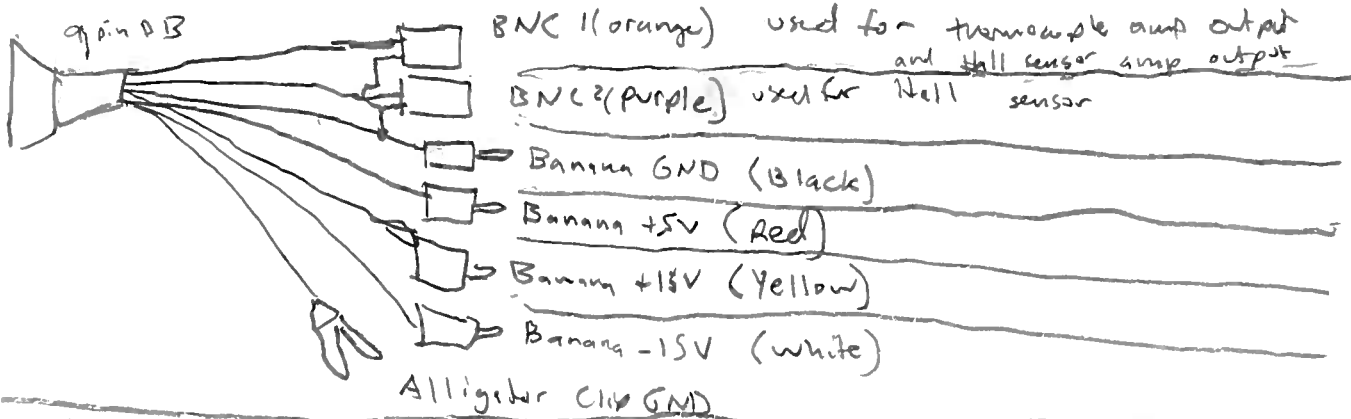 9 pin DB
BNC 1(orange) used for thermocouple amp output
and Hall sensor amp output
BNC 2(purple) used for Hall sensor
Banana GND (Black)
Banana +5V (Red)
Banana +15V (Yellow)
Banana -15V (white)
Alligator Clip GND